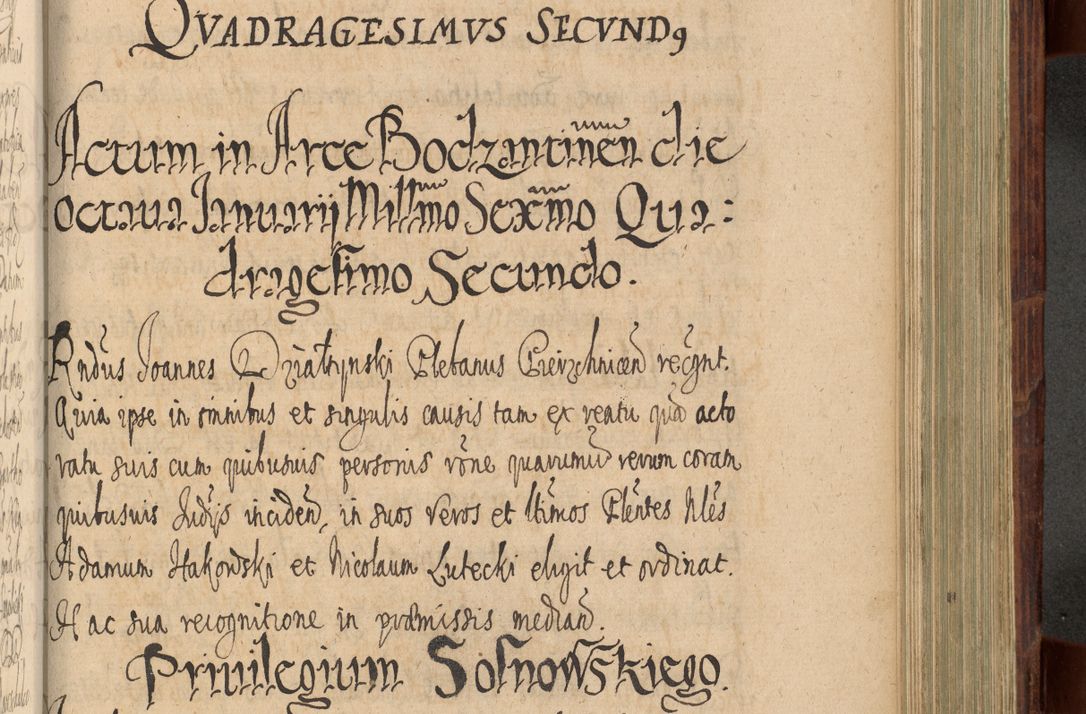 QVADRAGESIMVS SECVND9
Actum in Arce Bodzantinen die
octaua Januarij Millmo Sexmo Qua:
dragesimo Secundo.
Rndus Joannes Działynski Plebanus Pierzchnicen recognt.
Quia ipse in omnibus et singulis causis tam ex reatu qua acto
ratu suis cum quibusuis personis rone quarumuis rerum coram
quibusuis Judijs inciden, in suos veros et ltimos Plentes Nles
Adamum Hakowski et Nicolaum Lutecki eligit et ordinat.
Hac sua recognitione in praemissis median.
Priuilegium Sosnowskiego.